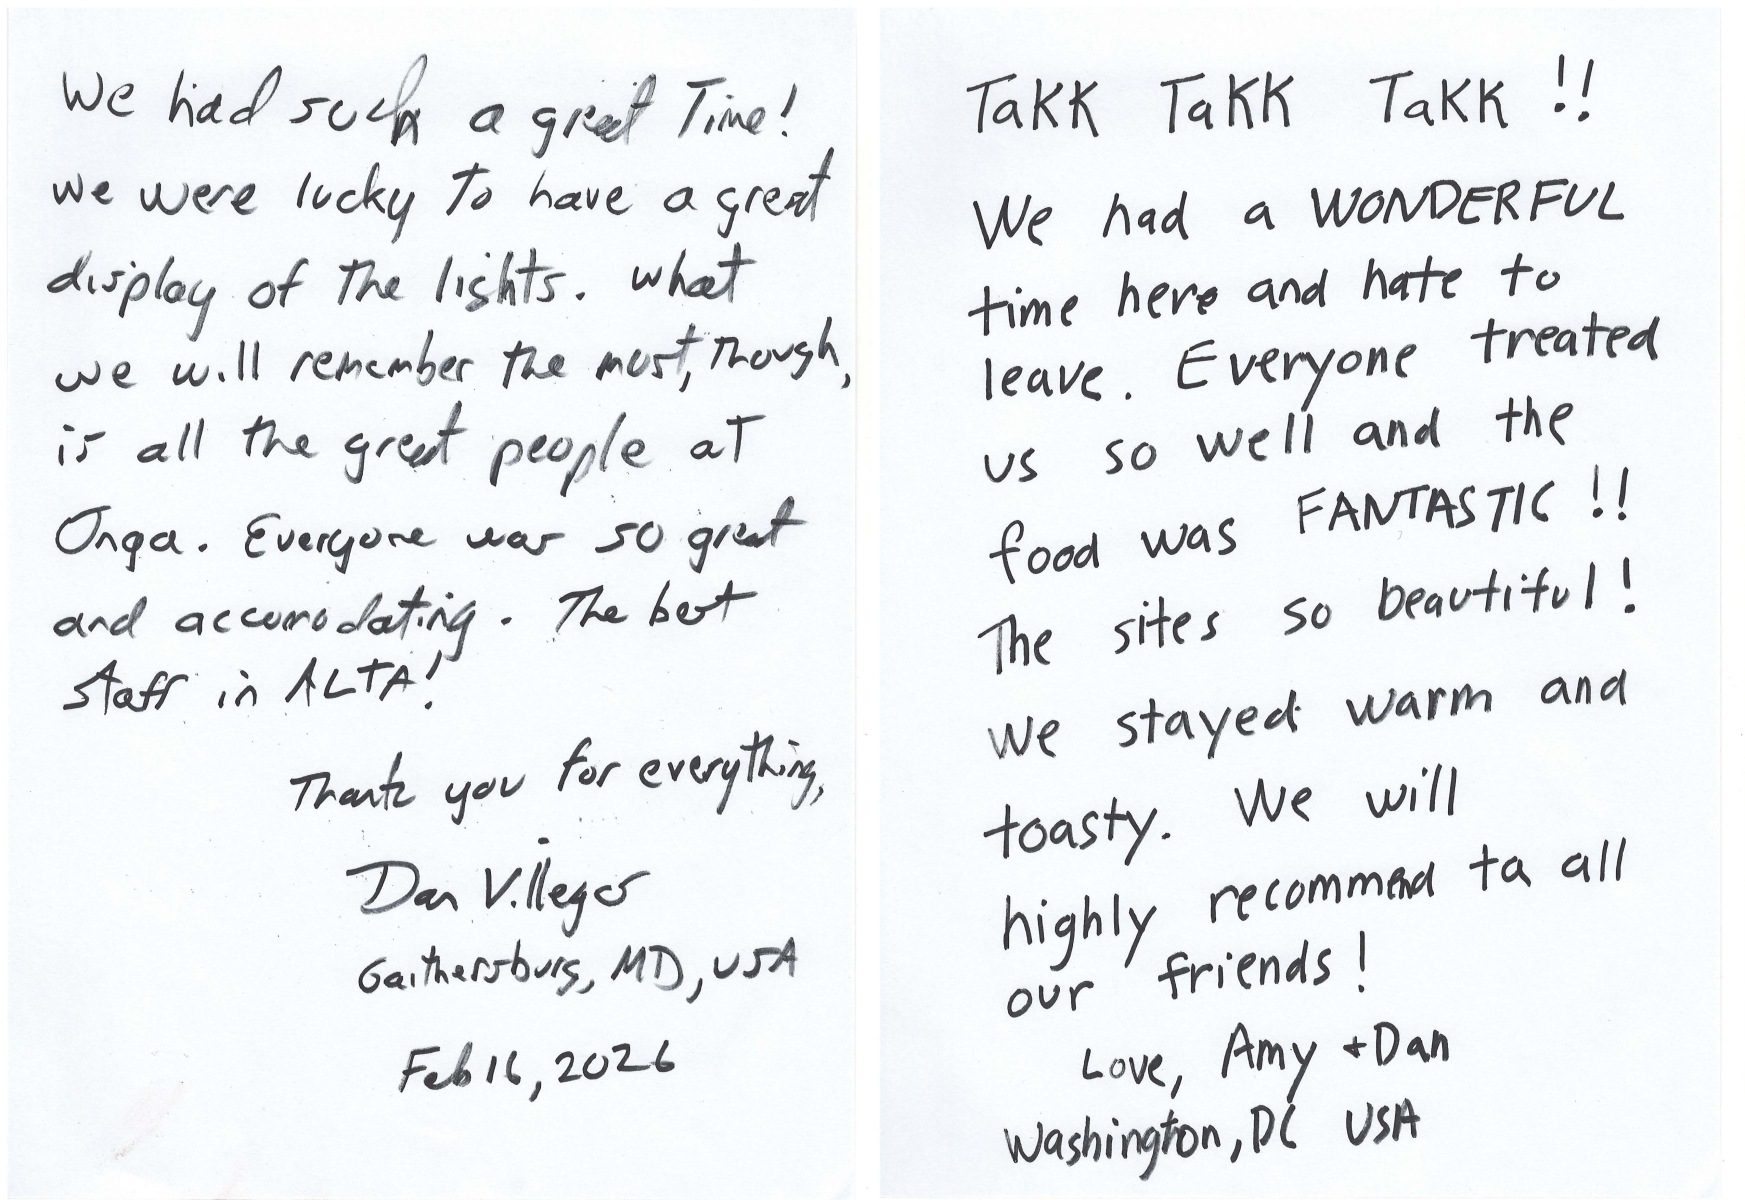 We had such a great Time!
we were lucky to have a great
display of the lights. What
we will remember the most, Though,
is all the great people at
Onga. Everyone was so great
and accomodating. The best
staff in ALTA!
Thank you for everything,
Dan Villegas
Gaithersburg, MD, USA
Feb 16, 2026
TaKK TaKK TaKK !!
We had a WONDERFUL
time here and hate to
leave. Everyone treated
us so well and the
food was FANTASTIC !!
The sites so beautiful!
We stayed warm and
toasty. We will
highly recommend ta all
our friends!
Love, Amy + Dan
Washington, DC USA